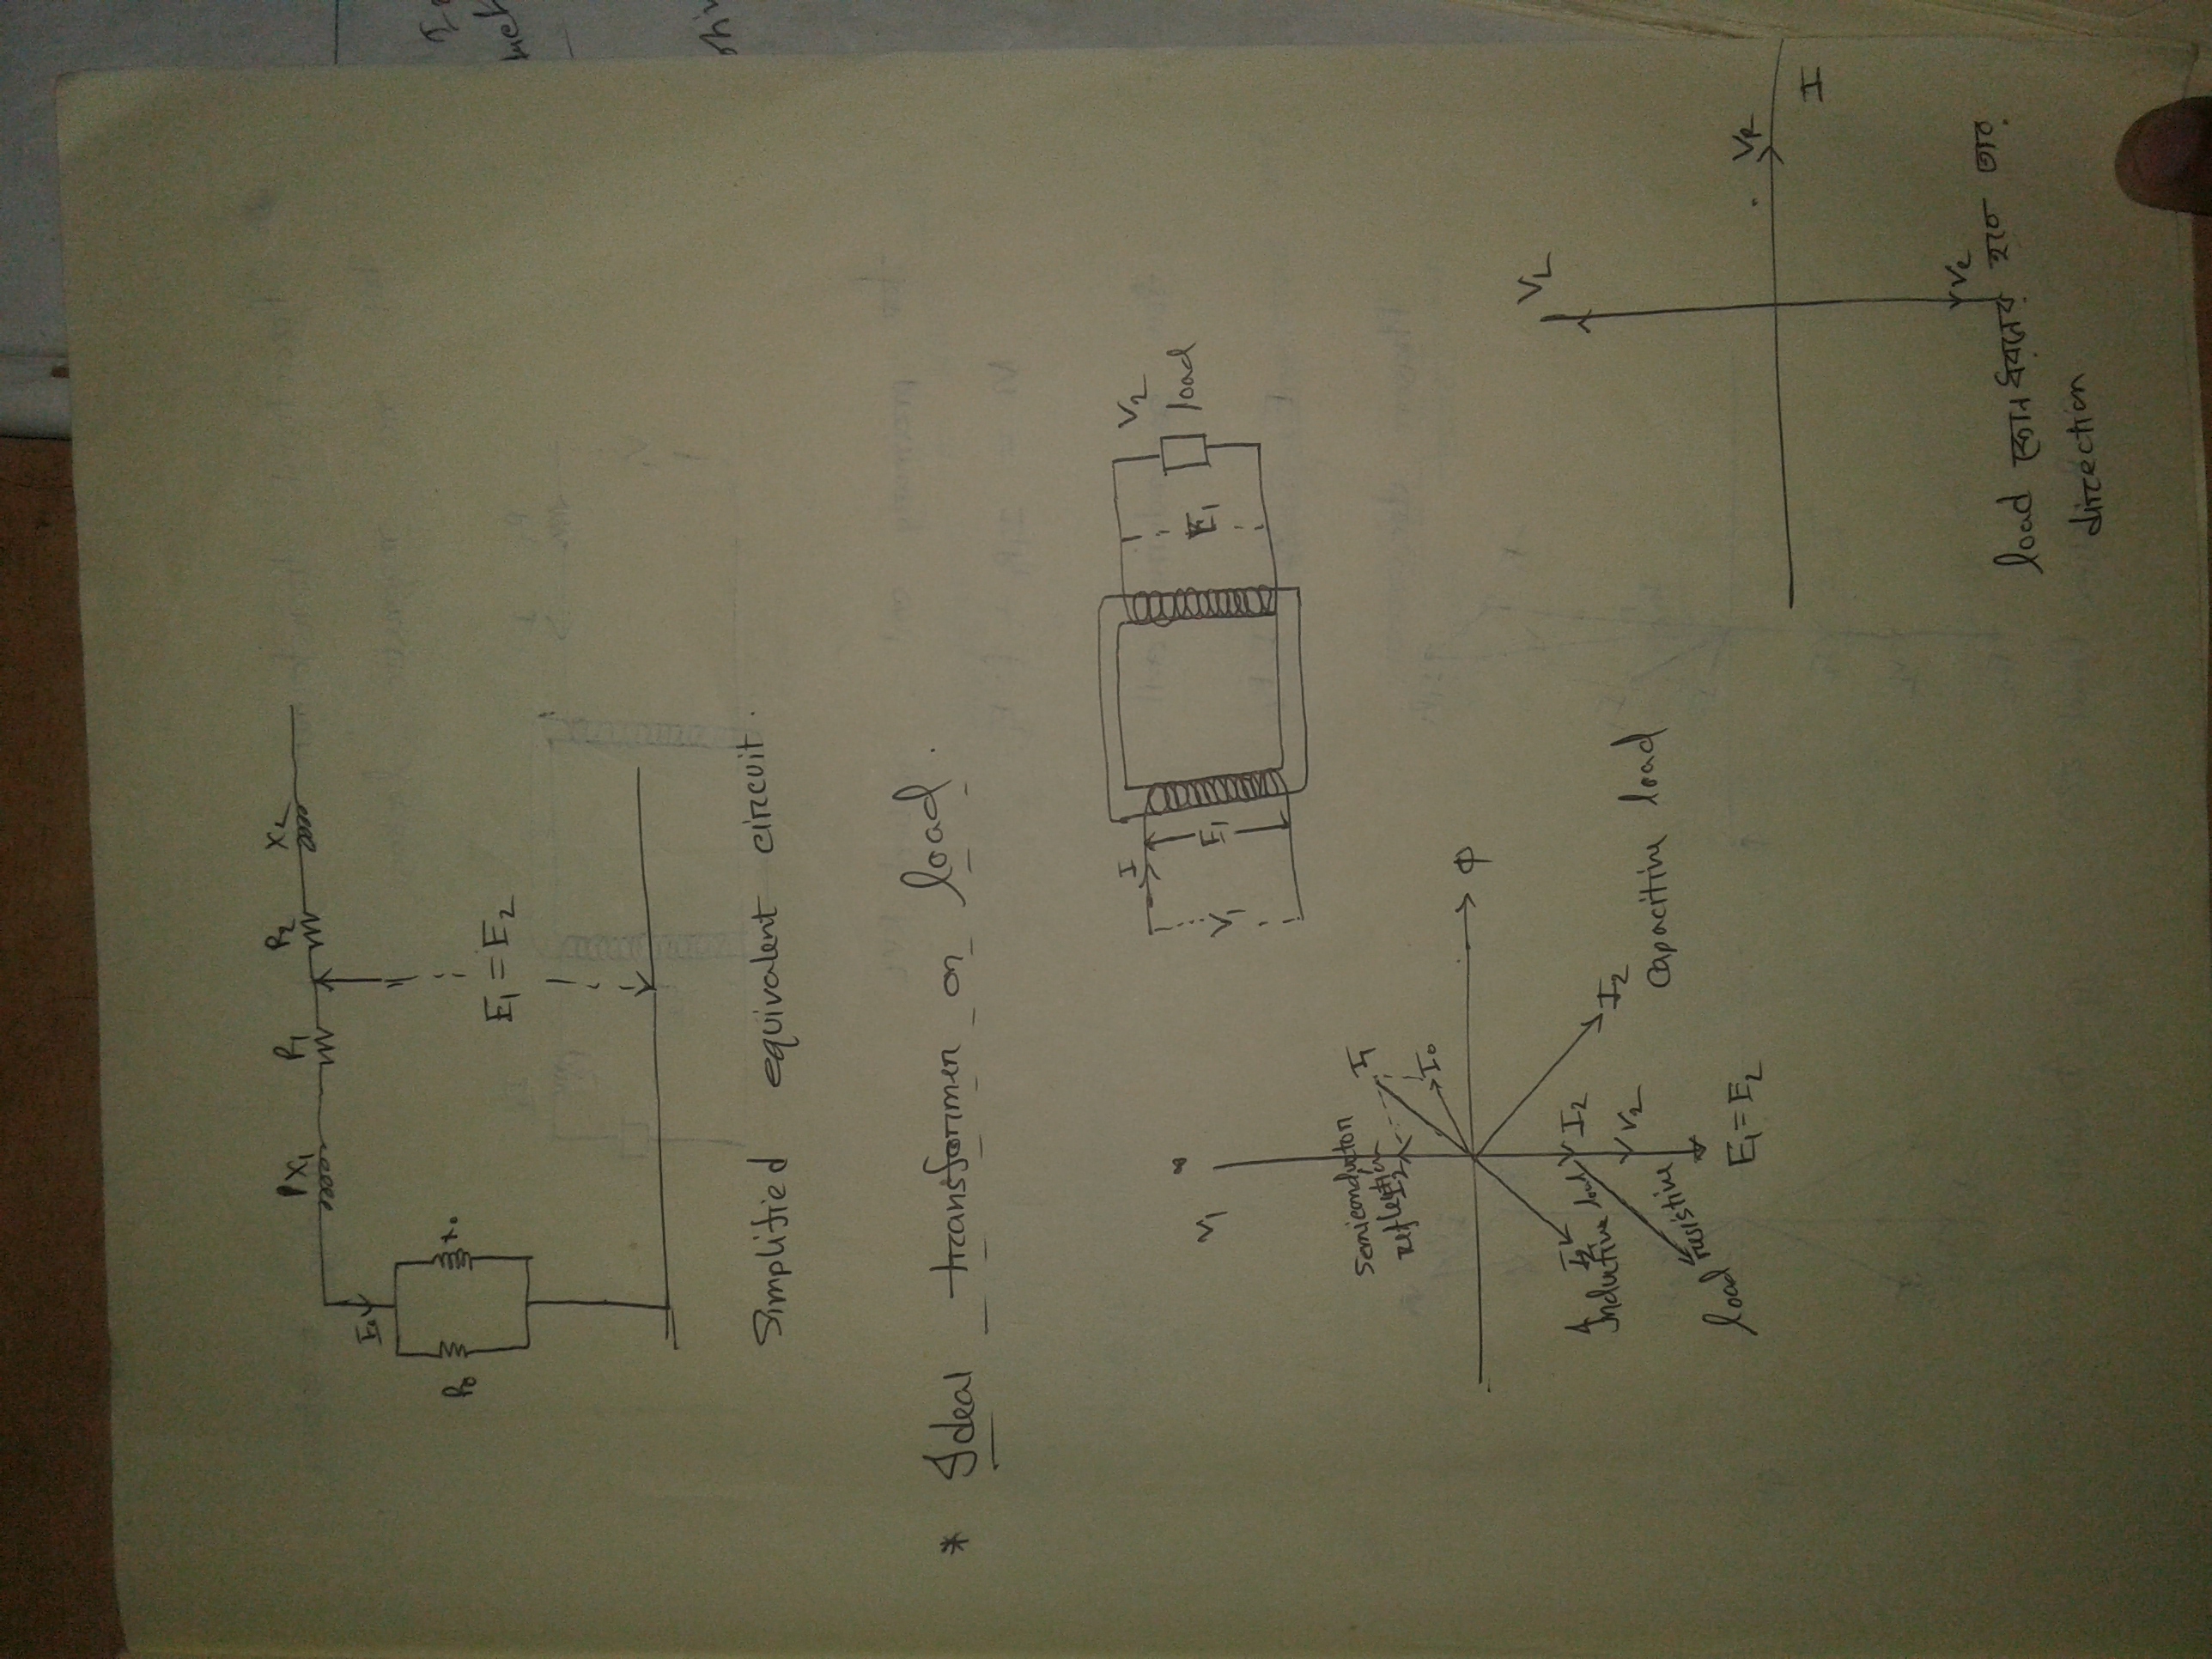 X₁ R₁ R₂ X₂
I₀
R₀ X₀
E₁ = E₂
Simplified equivalent circuit.
* Ideal transformer on load.
I V₂
V₁ E₁ E₁ load
V₁
Semiconductor
reflection
I₂
I₁
I₀
Φ
I₂ I₂
Inductive load
V₂ I₂
Capacitive load
load resistive
E₁ = E₂
V_L
V_R
I
V_c
load কোন ধরনের হবে তার
direction